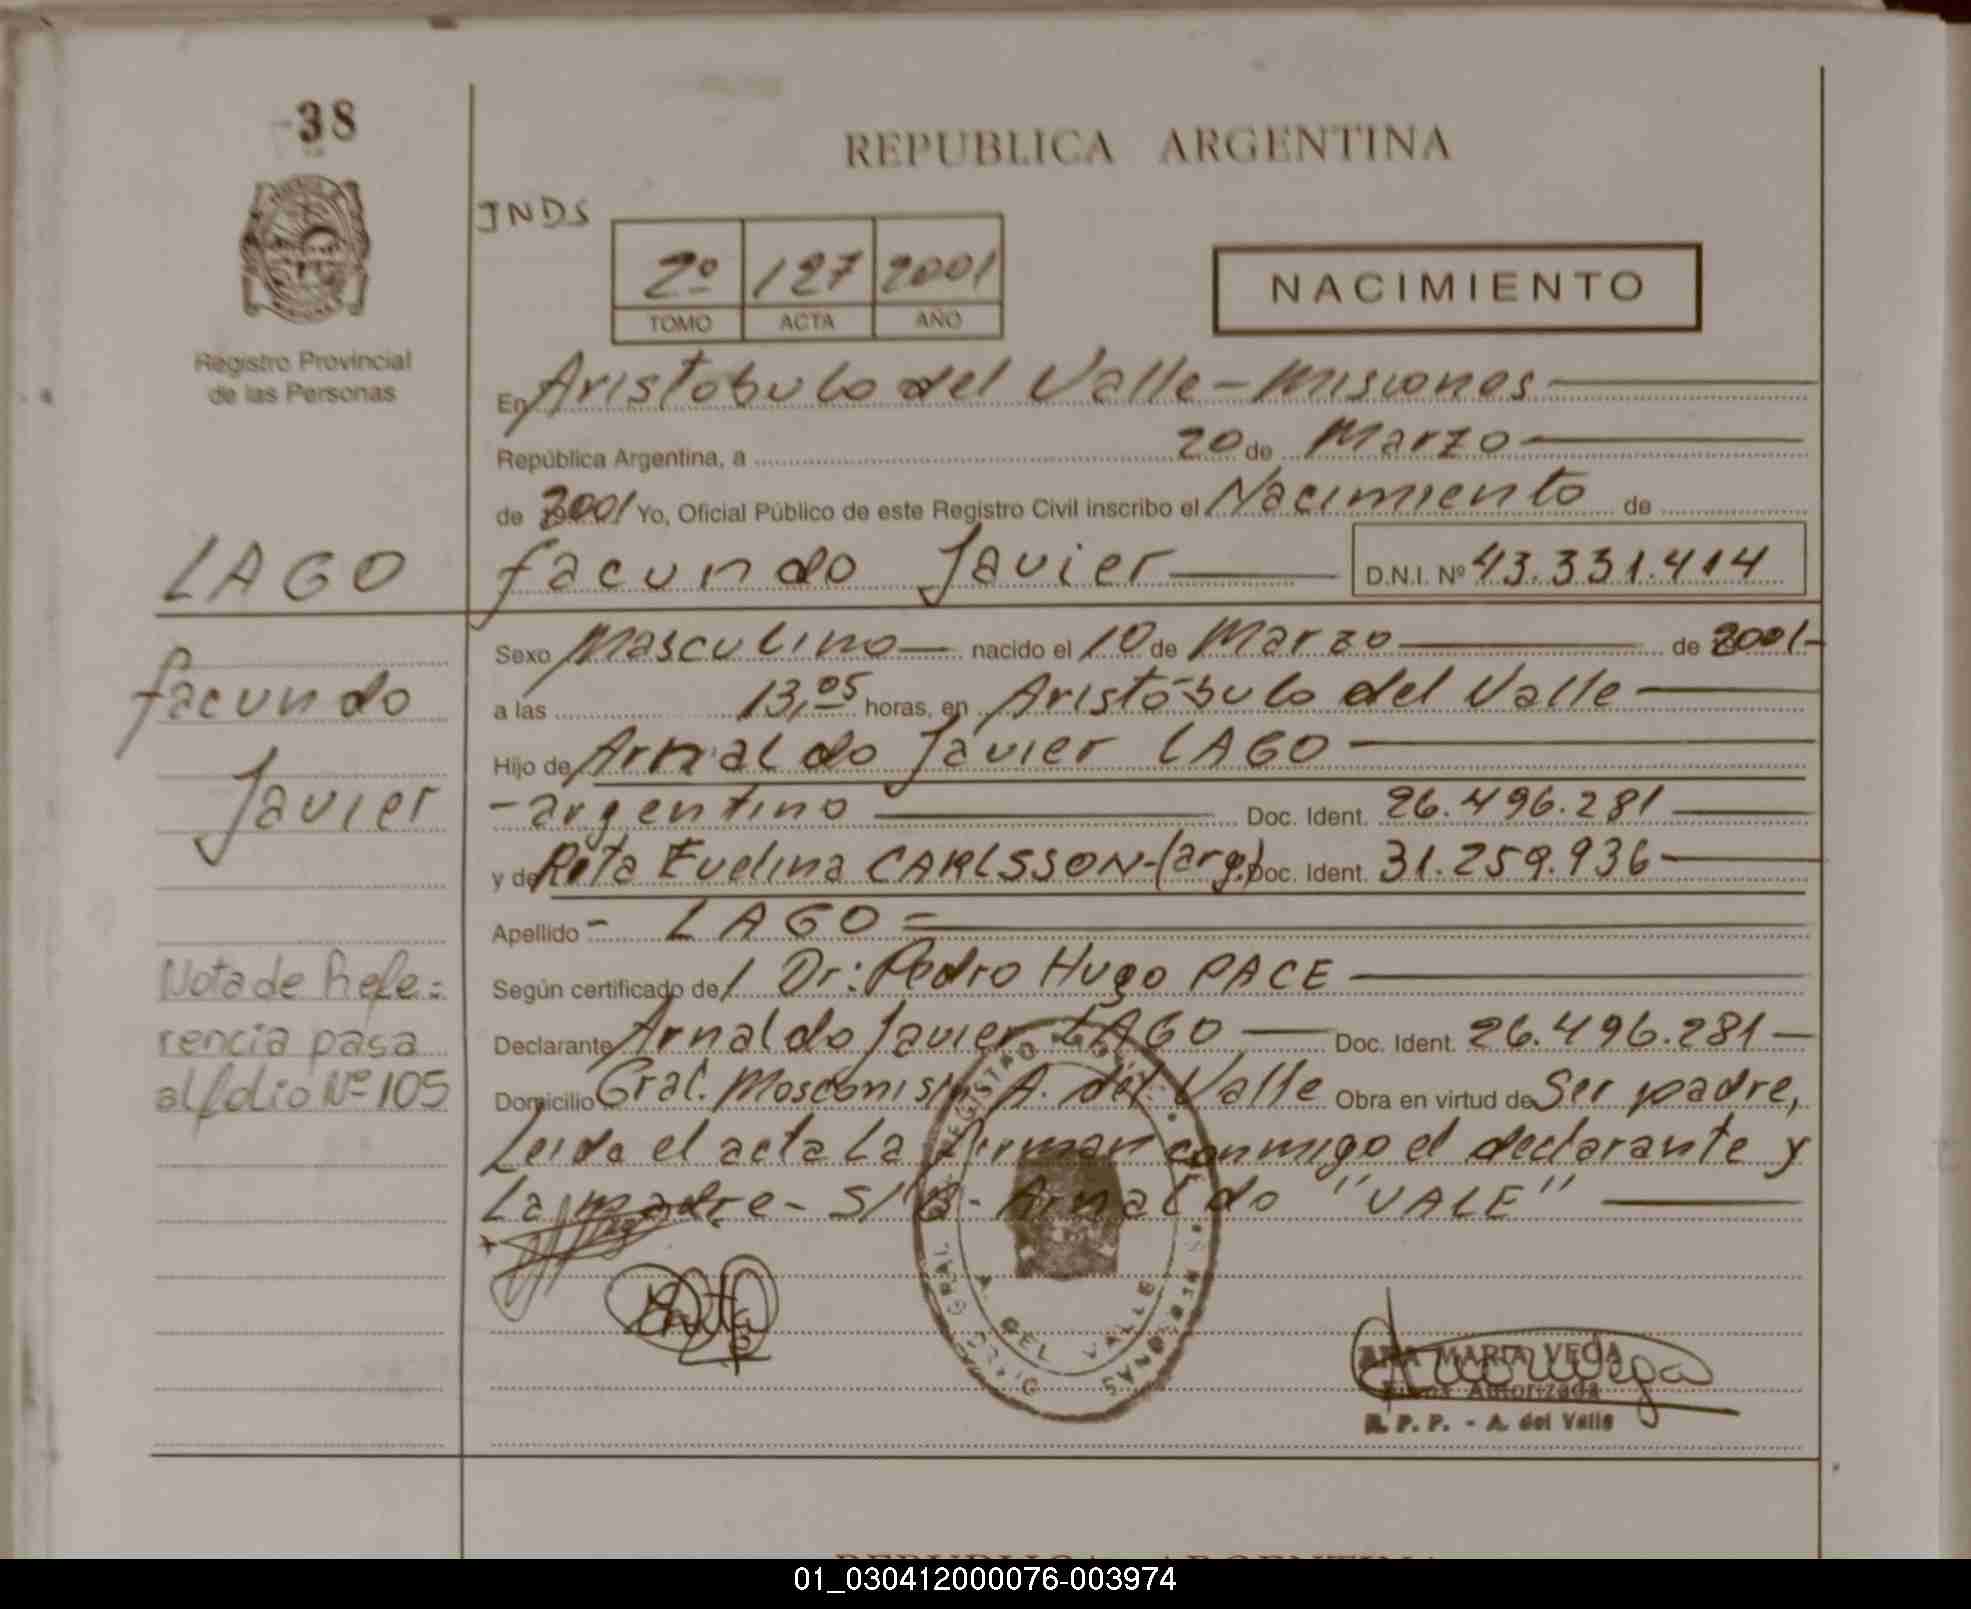 38
REPUBLICA ARGENTINA
INDS
2º 127 2001
TOMO ACTA AÑO
NACIMIENTO
Registro Provincial
de las Personas
En Aristobulo del Valle - Misiones
República Argentina, a 20 de Marzo
de 2001 Yo, Oficial Público de este Registro Civil inscribo el Nacimiento de
LAGO
facundo Javier D.N.I. Nº 43.331.414
Sexo Masculino nacido el 10 de Marzo de 2001-
facundo
a las 13,05 horas, en Aristóbulo del Valle
Javier
Hijo de Arnaldo Javier LAGO
- argentino Doc. Ident. 26.496.281
y de Rita Evelina CARLSSON-(arg.) Doc. Ident. 31.259.936
Apellido - LAGO =
Nota de Refe=
rencia pasa
al folio Nº 105
Según certificado de/ Dr: Pedro Hugo PACE
Declarante Arnaldo Javier LAGO Doc. Ident. 26.496.281
Domicilio Gral. Mosconi s/n A. del Valle Obra en virtud de Ser padre,
Leida el acta La firman conmigo el declarante y
La madre - S/B - Arnaldo "VALE"
DIREC. GRAL. REGISTRO PERSONAS
A. DEL VALLE
ANA MARIA VEGA
Firma Autorizada
R. P. P. - A. del Valle
REPUBLICA ARGENTINA
01_030412000076-003974